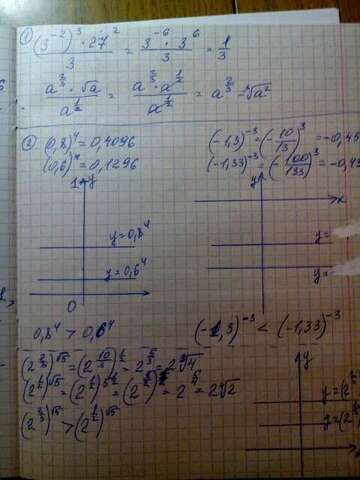 1) ((3⁻²)³ · 27²)/3 = (3⁻⁶ · 3⁶)/3 = 1/3
(a^(2/3) · √a)/a^(1/2) = (a^(2/3) · a^(1/2))/a^(1/2) = a^(2/3) = ³√a²
2) (0,8)⁴ = 0,4096
(0,6)⁴ = 0,1296
(-1,3)⁻³ = (-10/13)³ = -0,45
(-1,33)⁻³ = (-100/133)³ = -0,4
y
y = 0,8⁴
y = 0,6⁴
0
y
x
y =
y =
0,8⁴ > 0,6⁴
(-1,3)⁻³ < (-1,33)⁻³
(2^(2/3))^√5 =
= 2 ³√4
(2^(1/2))^√5 =
= 2 ⁴√2
(2^(2/3))^√5 > (2^(1/2))^√5
y
y = (2
y = (2